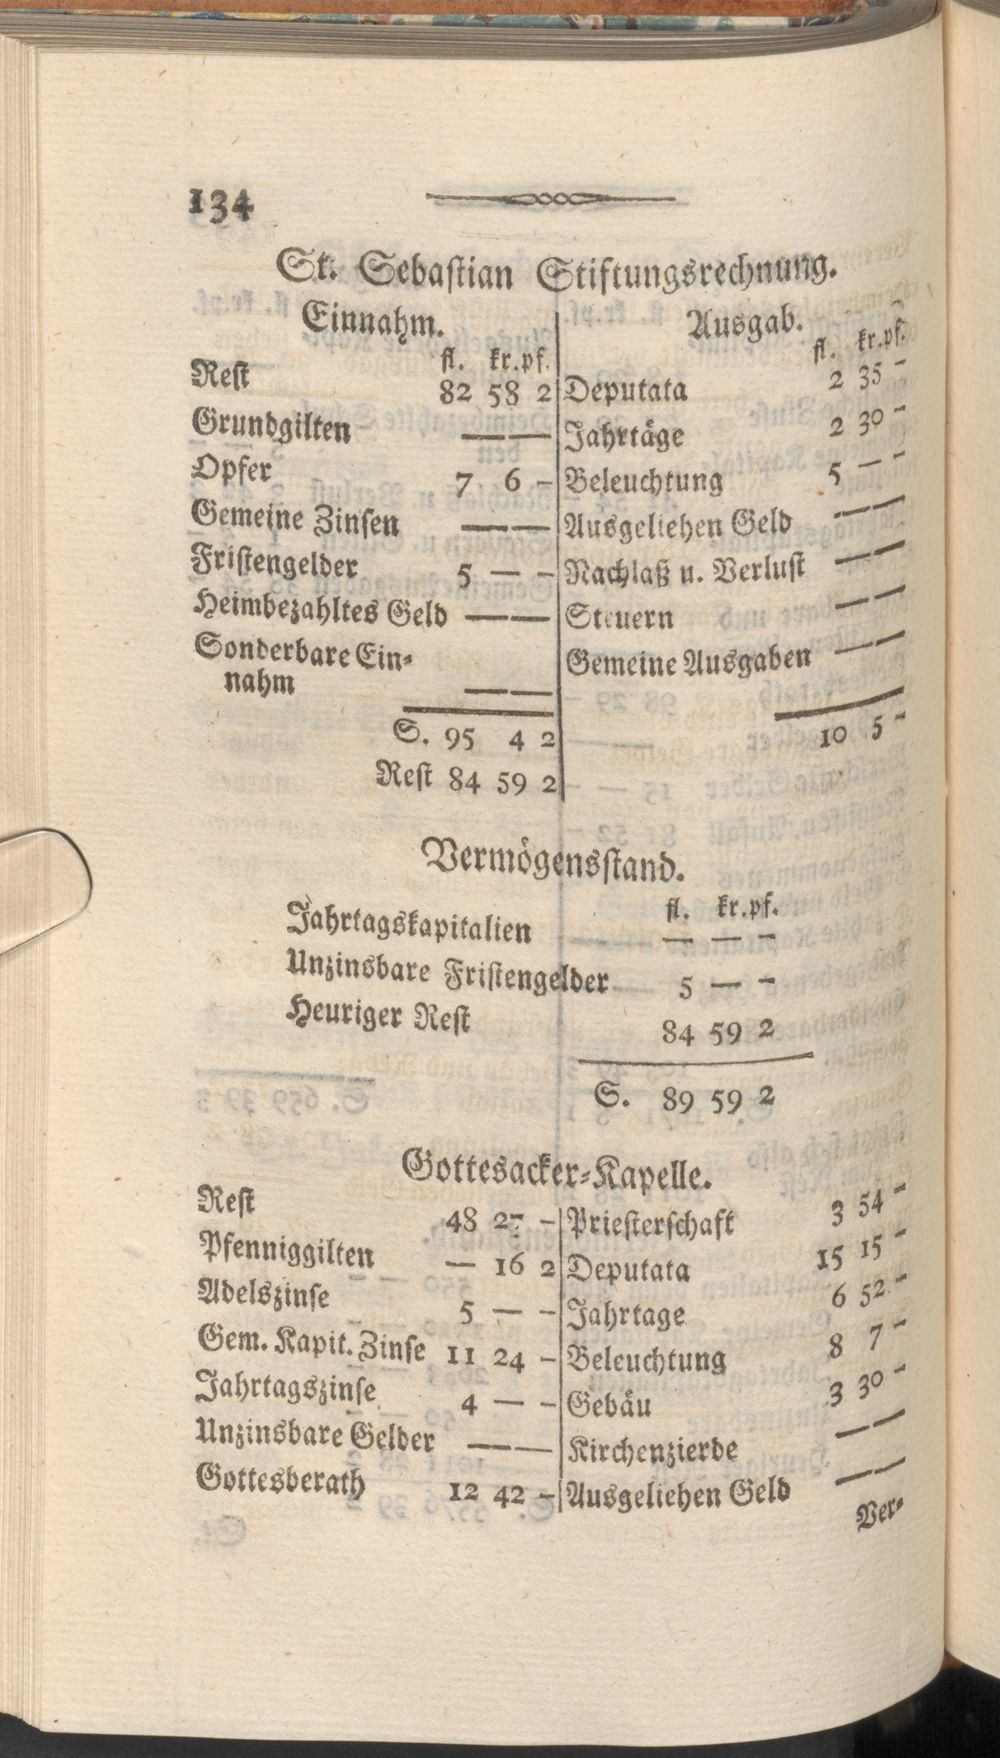 134
St. Sebastian Stiftungsrechnung.
Einnahm.
fl. kr. pf.
Rest 82 58 2
Grundgilten — —
Opfer 7 6 -
Gemeine Zinsen — —
Fristengelder 5 — -
Heimbezahltes Geld — —
Sonderbare Ein-
nahm — —
S. 95 4 2
Rest 84 59 2
Ausgab.
fl. kr. pf.
Deputata 2 35 -
Jahrtäge 2 30 -
Beleuchtung 5 — -
Ausgeliehen Geld — —
Nachlaß u. Verlust — —
Steuern — —
Gemeine Ausgaben — —
10 5 -
Vermögensstand.
fl. kr. pf.
Jahrtagskapitalien — — -
Unzinsbare Fristengelder 5 — -
Heuriger Rest 84 59 2
S. 89 59 2
Gottesacker-Kapelle.
Rest 48 27 -
Pfenniggilten — 16 2
Adelszinse 5 — -
Gem. Kapit. Zinse 11 24 -
Jahrtagszinse 4 — -
Unzinsbare Gelder — —
Gottesberath 12 42 -
Priesterschaft 3 54 -
Deputata 15 15 -
Jahrtage 6 52 -
Beleuchtung 8 7 -
Gebäu 3 30 -
Kirchenzierde — —
Ausgeliehen Geld — —
Ver-